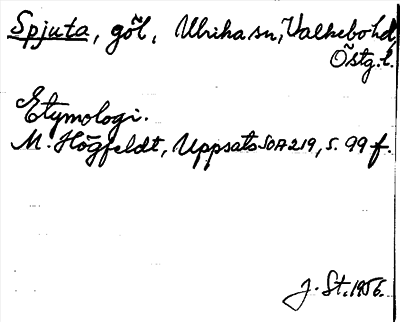 Spjuta, göl, Ulrika sn, Valkebo hd,
Östg.l.
Etymologi.
M. Högfeldt, Uppsats SOA 219, s. 99 f.
J. St. 1956.